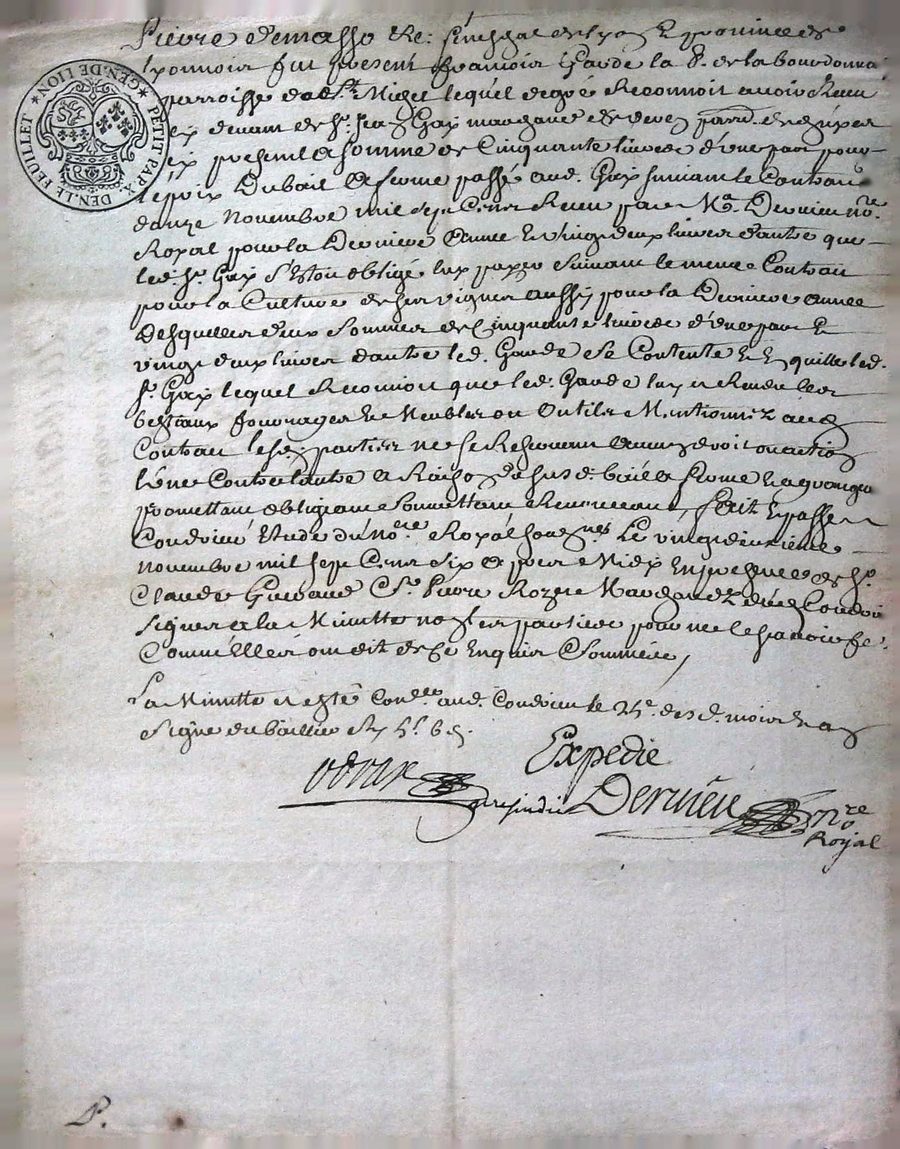 GEN. DE LION * PETIT PAP. X. DEN. LE FEUILLET *
Pierre demasso &c. seneschal de lyon Et province de
lyonnois fut present francois Garde la
parroisse de St. Michel lequel de gré Reconnoit avoir Receu
devant de Sr. Jean Gay marchant
present la somme de Cinquante livres d'une part pour
le prix Du bail a ferme passé aud. Gay suivant le Contrau
donze Novembre mil sept Cens Receu par Me. Dervieu nore.
Royal pour la Derniere Année Et vingt deux livres d'autre que
led. Sr. Gay s'Estoit obligé luy payer suivant le meme Contrau
pour la Culture de ses vignes aussy pour la Derniere année
Desquelles deux Sommes de Cinquante livres d'une part Et
vingt deux livres d'autre led. Garde se Contente Et En quitte led.
Sr. Gay lequel Reconnoit que led. Garde luy a Rendu les
bestiaux fourrages Et Meubles ou Outils Mentionnez aud.
Contrau lesd. parties ne se Reservant aucung droit ou action
l'une Contre l'autre a Raison de sus d.
promettant obligeant Soumettant Renonceant, fait Et passé a
Condrieu Etude du nore. Royal soussignes Le vingt deuxieme
novembre mil sept Cens six apres Midy En presence de Sr.
Claude Guiraud Et Sr. Pierre Roze Marchandz dud. Condrieu
Signes a la Minutte non les parties pour ne le scavoir fe.
Comm'Elles ont dit de ce Enquis Sommées,
La Minutte a esté Conlleé aud. Condrieu le 25e. desd. mois Et an
Signe dubaillier
Expedie
Dervieu nore
Royal
P.